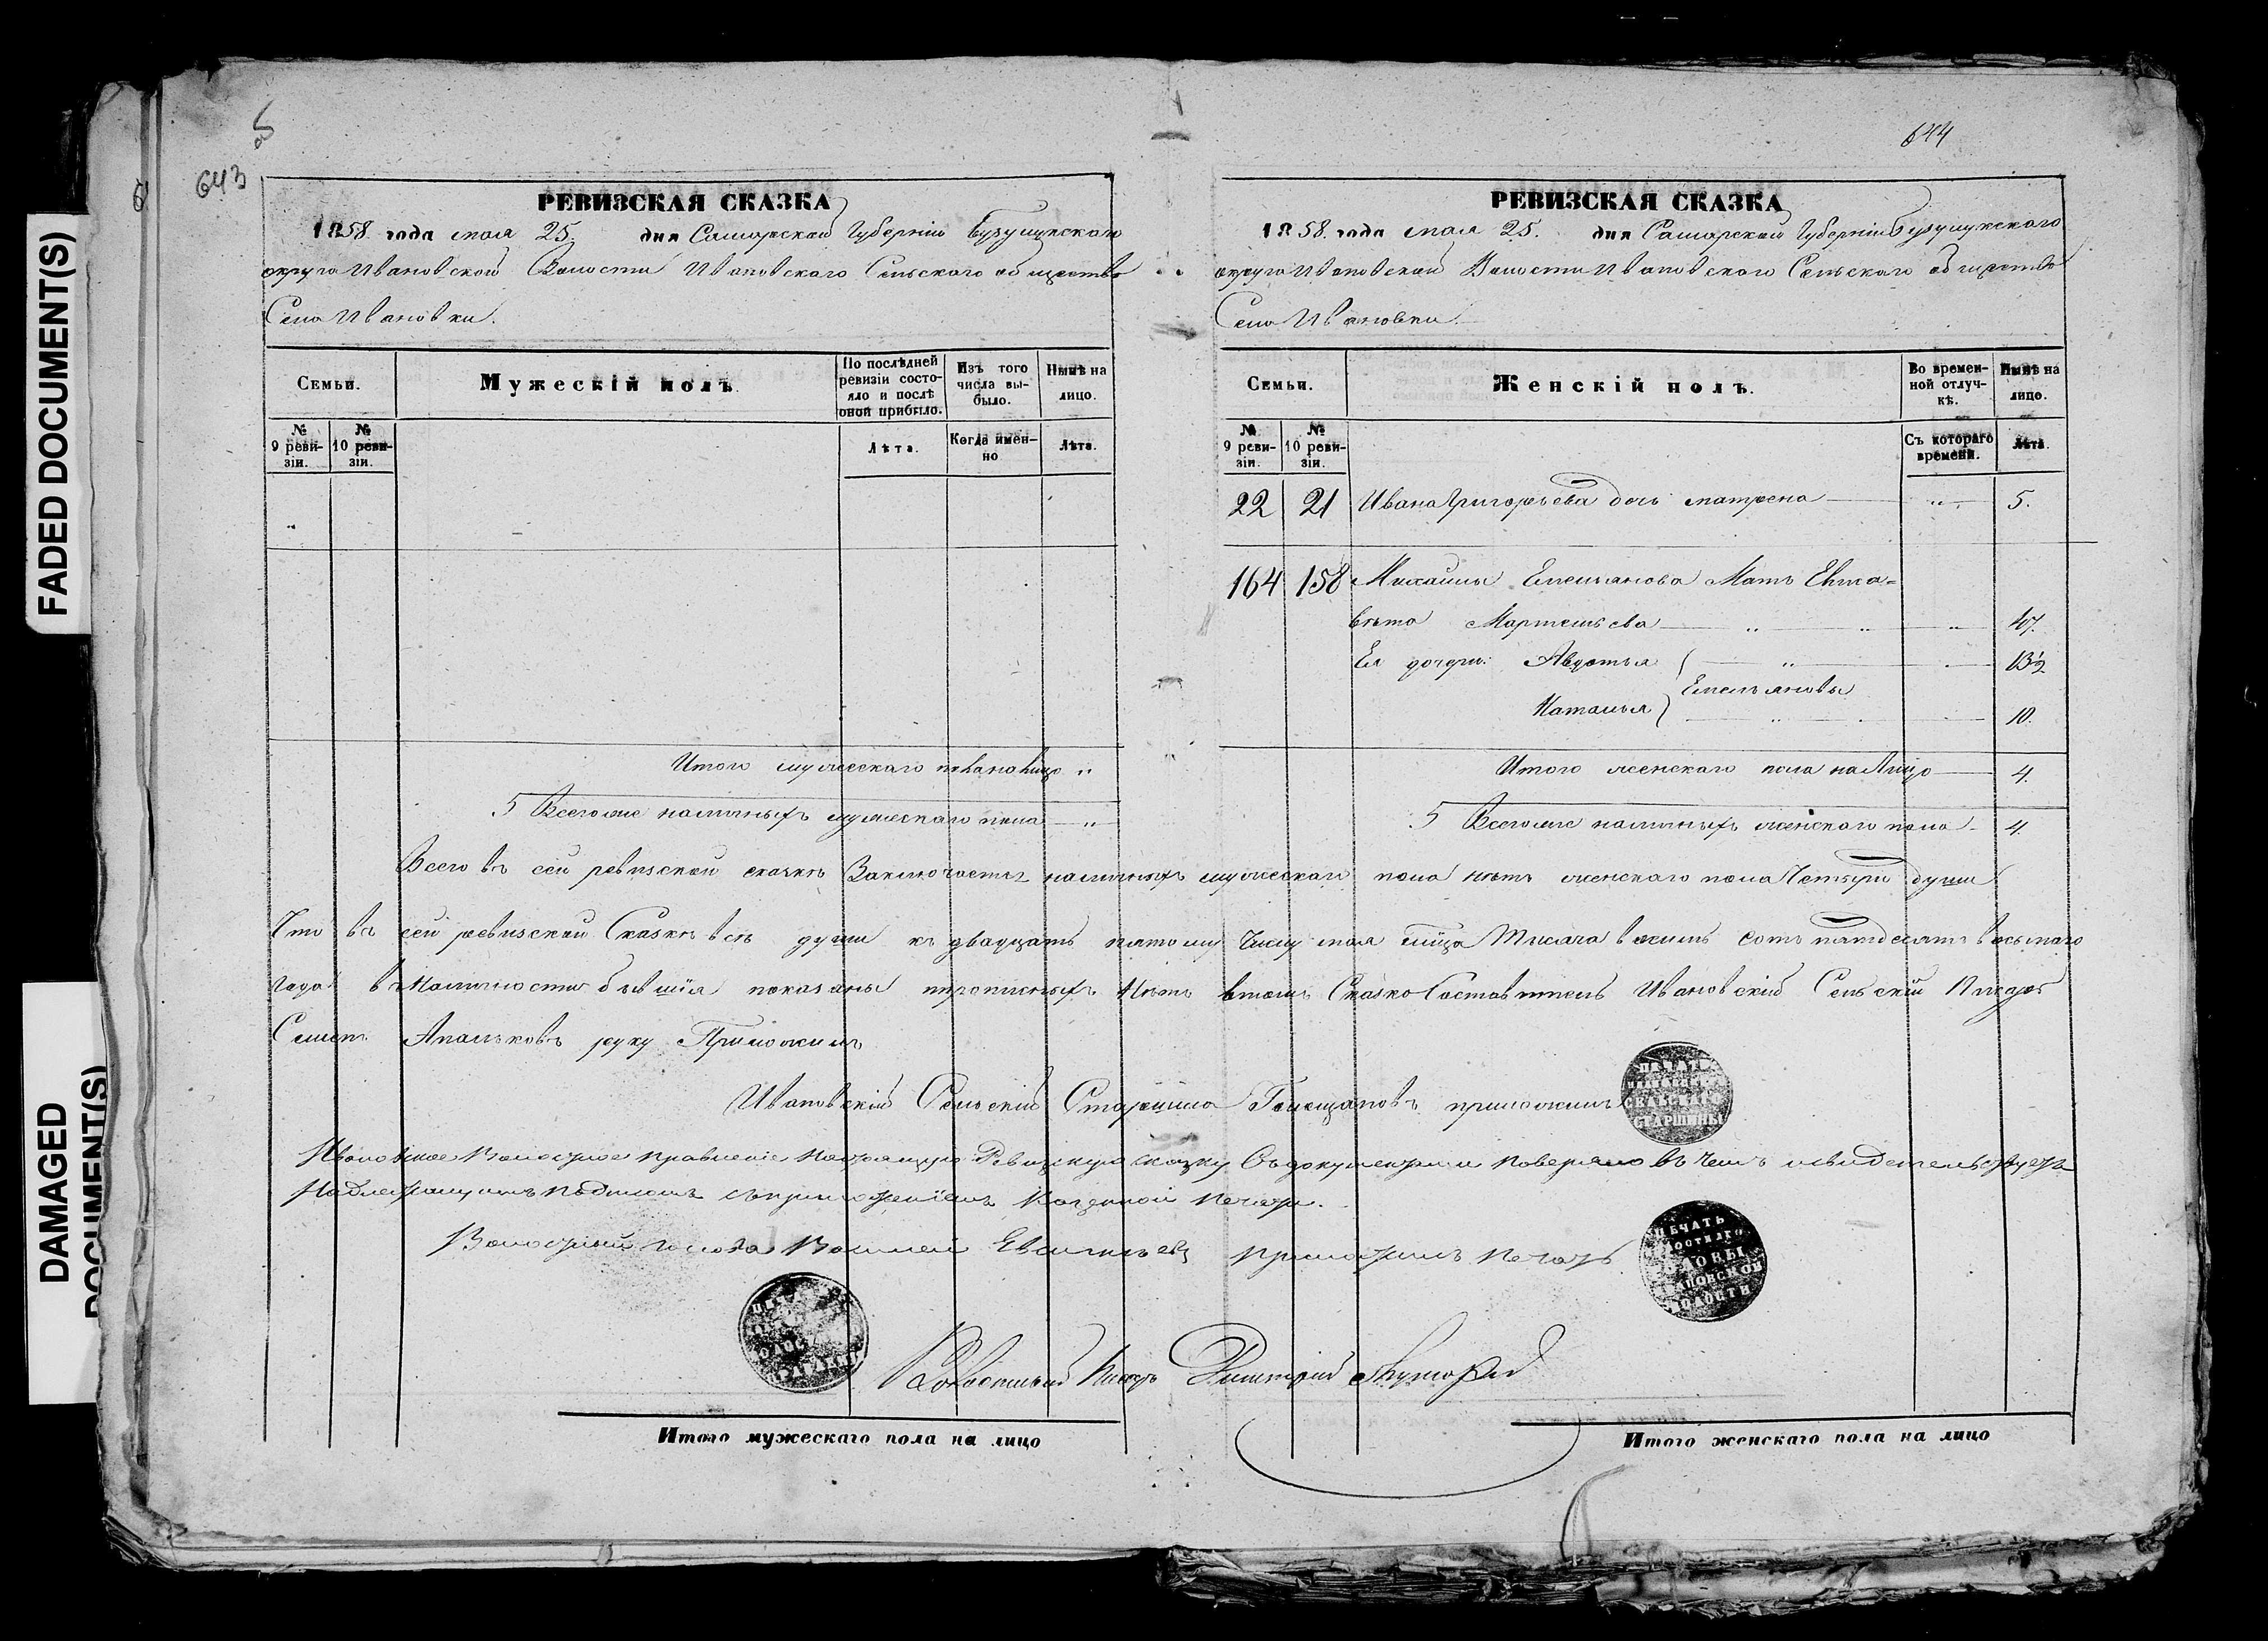 FADED DOCUMENT(S)
DAMAGED
DOCUMENT(S)
643
644
РЕВИЗСКАЯ СКАЗКА
1858 года мая 25 дня Самарской Губерніи Бузулукскаго
округа Ивановской Волости Ивановскаго Сельскаго общества
Села Ивановки.
Семьи.
Мужескій полъ.
По послѣдней ревизіи состояло и послѣ оной прибыло.
Изъ того числа выбыло.
Нынѣ на лицо.
№ 9 ревизіи.
№ 10 ревизіи.
Лѣта.
Когда именно
Лѣта.
Итого мужескаго пола на лицо "
5 Всего же наличныхъ мужескаго пола — "
РЕВИЗСКАЯ СКАЗКА
1858. года мая 25. дня Самарской Губерніи Бузулукскаго
округа Ивановской Волости Ивановскаго Сельскаго общества
Села Ивановки.
Семьи.
Женскій полъ.
Во временной отлучкѣ.
Нынѣ на лицо.
№ 9 ревизіи.
№ 10 ревизіи.
Съ котораго времени.
Лѣта.
22 21 Ивана Григорьева дочь Матрена — " — 5.
164 158 Михаилы Емельянова Мать Елиза=
вѣта " " " 47.
Ея дочери: Авдотья " 13½
Емельяновы
Наталья " 10.
Итого женскаго пола на Лицо — 4.
5 Всего же наличныхъ женскаго пола — 4.
Всего въ сей ревизской сказкѣ Заключается наличныхъ мужескаго пола нѣтъ женскаго пола Четыри души
Что въ сей ревизской Сказкѣ всѣ души къ двадцать пятому Числу мая мѣца Тысяча восемь сотъ пятдесятъ восьмаго
года въ Наличности бывшія показаны прописныхъ Нѣтъ втомъ Сказко Составитель Ивановскій Сельскій Писарь
Семенъ Апальковъ руку Приложилъ
Ивановскій Сельскій Старшина приложилъ
ПЕЧАТЬ
СЕЛЬСКАГО
СТАРШИНЫ
Ивановское Волостное Правленіе Настоящую Ревизскую сказку Съ документами поверяло въ чемъ и свидетельствуетъ
Надлежащимъ подписомъ съ приложеніемъ Казенной Печати.
Волостной голова приложилъ печать
ПЕЧАТЬ
ВОЛОСТНАГО
ГОЛОВЫ
ИВАНОВСКОЙ
ВОЛОСТИ
Волостной Писарь Димитрій
Итого мужескаго пола на лицо
Итого женскаго пола на лицо